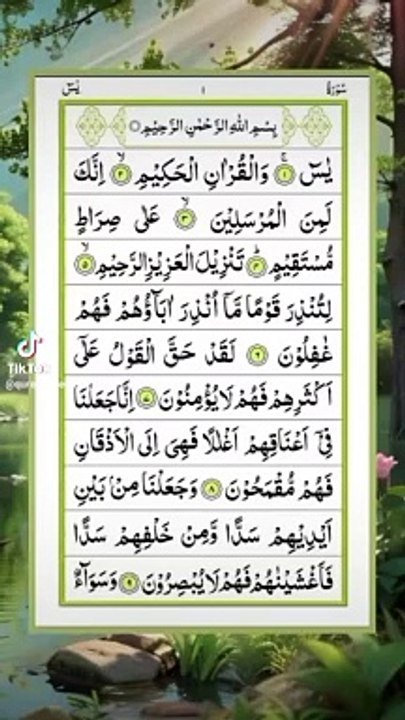 سورة ١ يٰسٓ
بِسْمِ اللّٰهِ الرَّحْمٰنِ الرَّحِيْمِ
يٰسٓ ۚ﴿١﴾ وَالْقُرْاٰنِ الْحَكِيْمِ ۙ﴿٢﴾ اِنَّكَ
لَمِنَ الْمُرْسَلِيْنَ ۙ﴿٣﴾ عَلٰى صِرَاطٍ
مُّسْتَقِيْمٍ ؕ﴿٤﴾ تَنْزِيْلَ الْعَزِيْزِ الرَّحِيْمِ ۙ﴿٥﴾
لِتُنْذِرَ قَوْمًا مَّاۤ اُنْذِرَ اٰبَآؤُهُمْ فَهُمْ
غٰفِلُوْنَ ﴿٦﴾ لَقَدْ حَقَّ الْقَوْلُ عَلٰٓى
اَكْثَرِهِمْ فَهُمْ لَا يُؤْمِنُوْنَ ﴿٧﴾ اِنَّا جَعَلْنَا
فِيْۤ اَعْنَاقِهِمْ اَغْلٰلًا فَهِيَ اِلَى الْاَذْقَانِ
فَهُمْ مُّقْمَحُوْنَ ﴿٨﴾ وَجَعَلْنَا مِنْۢ بَيْنِ
اَيْدِيْهِمْ سَدًّا وَّمِنْ خَلْفِهِمْ سَدًّا
فَاَغْشَيْنٰهُمْ فَهُمْ لَا يُبْصِرُوْنَ ﴿٩﴾ وَسَوَآءٌ
TikTok